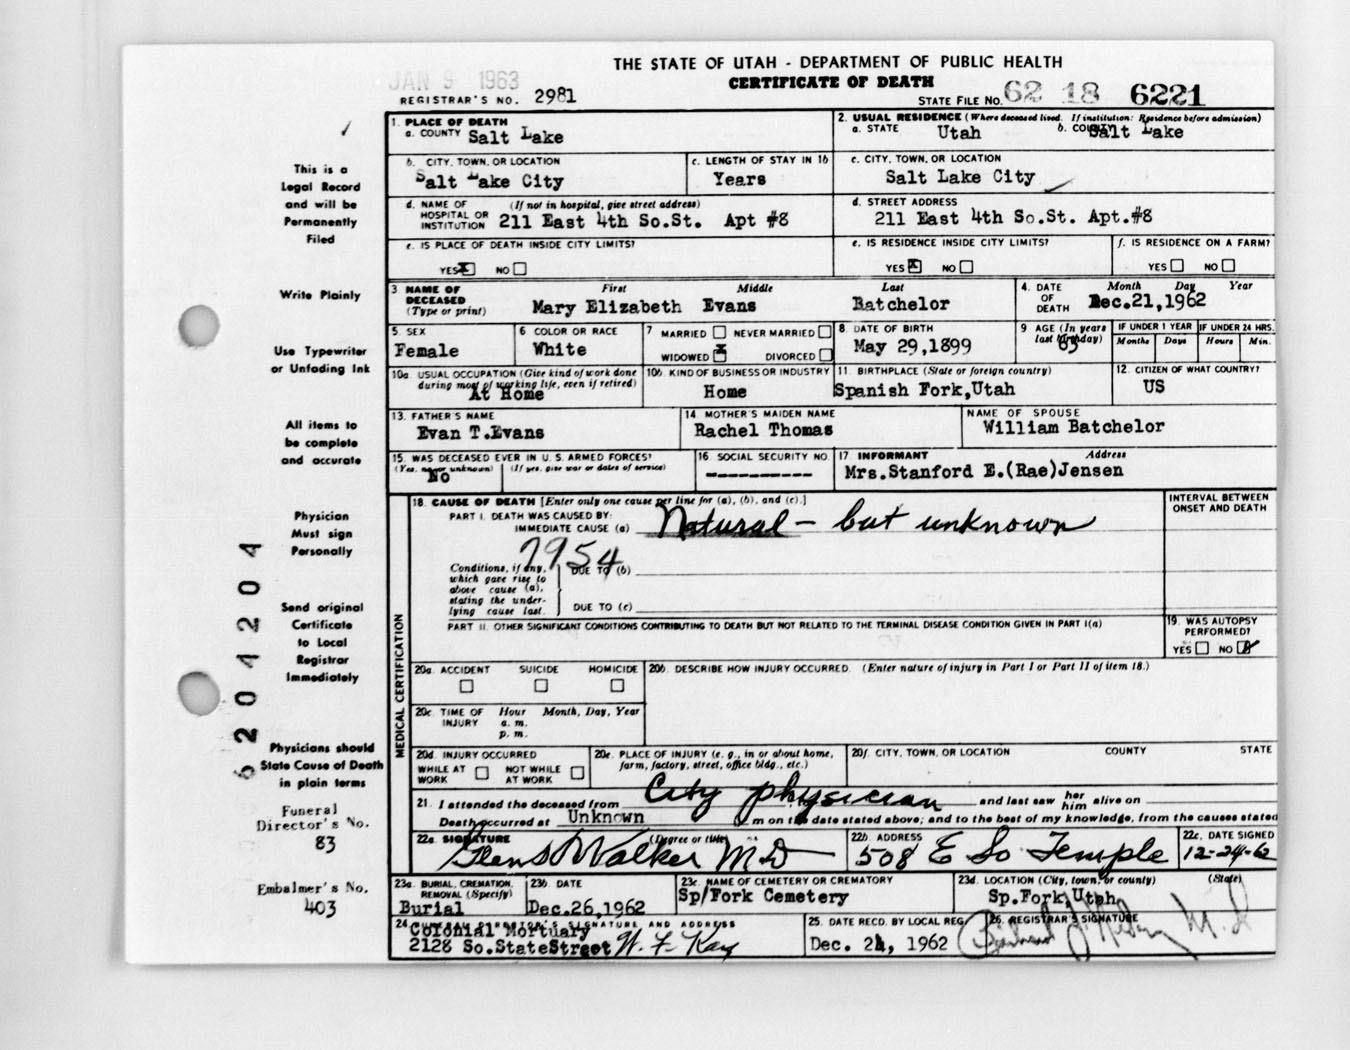 THE STATE OF UTAH - DEPARTMENT OF PUBLIC HEALTH
CERTIFICATE OF DEATH
JAN 9 1963
REGISTRAR'S NO. 2981
STATE FILE NO. 62 18 6221
This is a
Legal Record
and will be
Permanently
Filed
Write Plainly
Use Typewriter
or Unfading Ink
All items to
be complete
and accurate
Physician
Must sign
Personally
Send original
Certificate
to Local
Registrar
Immediately
Physicians should
State Cause of Death
in plain terms
Funeral
Director's No.
83
Embalmer's No.
403
6204204
1. PLACE OF DEATH
a. COUNTY Salt Lake
2. USUAL RESIDENCE (Where deceased lived. If institution: Residence before admission)
a. STATE Utah b. COUNTY Salt Lake
b. CITY, TOWN, OR LOCATION
Salt Lake City
c. LENGTH OF STAY IN 1b
Years
c. CITY, TOWN, OR LOCATION
Salt Lake City
d. NAME OF HOSPITAL OR INSTITUTION (If not in hospital, give street address)
211 East 4th So.St. Apt #8
d. STREET ADDRESS
211 East 4th So.St. Apt.#8
e. IS PLACE OF DEATH INSIDE CITY LIMITS?
YES X NO
e. IS RESIDENCE INSIDE CITY LIMITS?
YES X NO
f. IS RESIDENCE ON A FARM?
YES NO
3 NAME OF DECEASED (Type or print)
First Middle Last
Mary Elizabeth Evans Batchelor
4. DATE OF DEATH Month Day Year
Dec.21,1962
5. SEX
Female
6 COLOR OR RACE
White
7 MARRIED NEVER MARRIED
WIDOWED X DIVORCED
8 DATE OF BIRTH
May 29,1899
9 AGE (In years last birthday)
63
IF UNDER 1 YEAR
Months Days
IF UNDER 24 HRS.
Hours Min.
10a. USUAL OCCUPATION (Give kind of work done during most of working life, even if retired)
At Home
10b. KIND OF BUSINESS OR INDUSTRY
Home
11. BIRTHPLACE (State or foreign country)
Spanish Fork,Utah
12. CITIZEN OF WHAT COUNTRY?
US
13. FATHER'S NAME
Evan T.Evans
14 MOTHER'S MAIDEN NAME
Rachel Thomas
NAME OF SPOUSE
William Batchelor
15. WAS DECEASED EVER IN U.S. ARMED FORCES?
(Yes, no, or unknown) (If yes, give war or dates of service)
No
16. SOCIAL SECURITY NO.
----------
17 INFORMANT Address
Mrs.Stanford E.(Rae)Jensen
MEDICAL CERTIFICATION
18. CAUSE OF DEATH [Enter only one cause per line for (a), (b), and (c).]
INTERVAL BETWEEN ONSET AND DEATH
PART I. DEATH WAS CAUSED BY:
IMMEDIATE CAUSE (a) Natural - but unknown
7954
Conditions, if any, which gave rise to above cause (a), stating the underlying cause last.
DUE TO (b)
DUE TO (c)
PART II. OTHER SIGNIFICANT CONDITIONS CONTRIBUTING TO DEATH BUT NOT RELATED TO THE TERMINAL DISEASE CONDITION GIVEN IN PART I(a)
19. WAS AUTOPSY PERFORMED?
YES NO
20a. ACCIDENT SUICIDE HOMICIDE
20b. DESCRIBE HOW INJURY OCCURRED. (Enter nature of injury in Part I or Part II of item 18.)
20c. TIME OF INJURY Hour Month, Day, Year
a. m.
p. m.
20d. INJURY OCCURRED
WHILE AT WORK NOT WHILE AT WORK
20e. PLACE OF INJURY (e. g., in or about home, farm, factory, street, office bldg., etc.)
20f. CITY, TOWN, OR LOCATION COUNTY STATE
21. I attended the deceased from City physician and last saw her him alive on
Death occurred at Unknown m on the date stated above; and to the best of my knowledge, from the causes stated
22a. SIGNATURE (Degree or title)
Glen S Walker MD
22b. ADDRESS
508 E So Temple
22c. DATE SIGNED
12-24-62
23a. BURIAL, CREMATION, REMOVAL (Specify)
Burial
23b. DATE
Dec.26,1962
23c. NAME OF CEMETERY OR CREMATORY
Sp/Fork Cemetery
23d. LOCATION (City, town, or county) (State)
Sp.Fork,Utah
24. FUNERAL DIRECTOR'S SIGNATURE AND ADDRESS
Colonial Mortuary
2128 So.StateStreet W. F. Kay
25. DATE RECD. BY LOCAL REG.
Dec. 24, 1962
26. REGISTRAR'S SIGNATURE
M.D